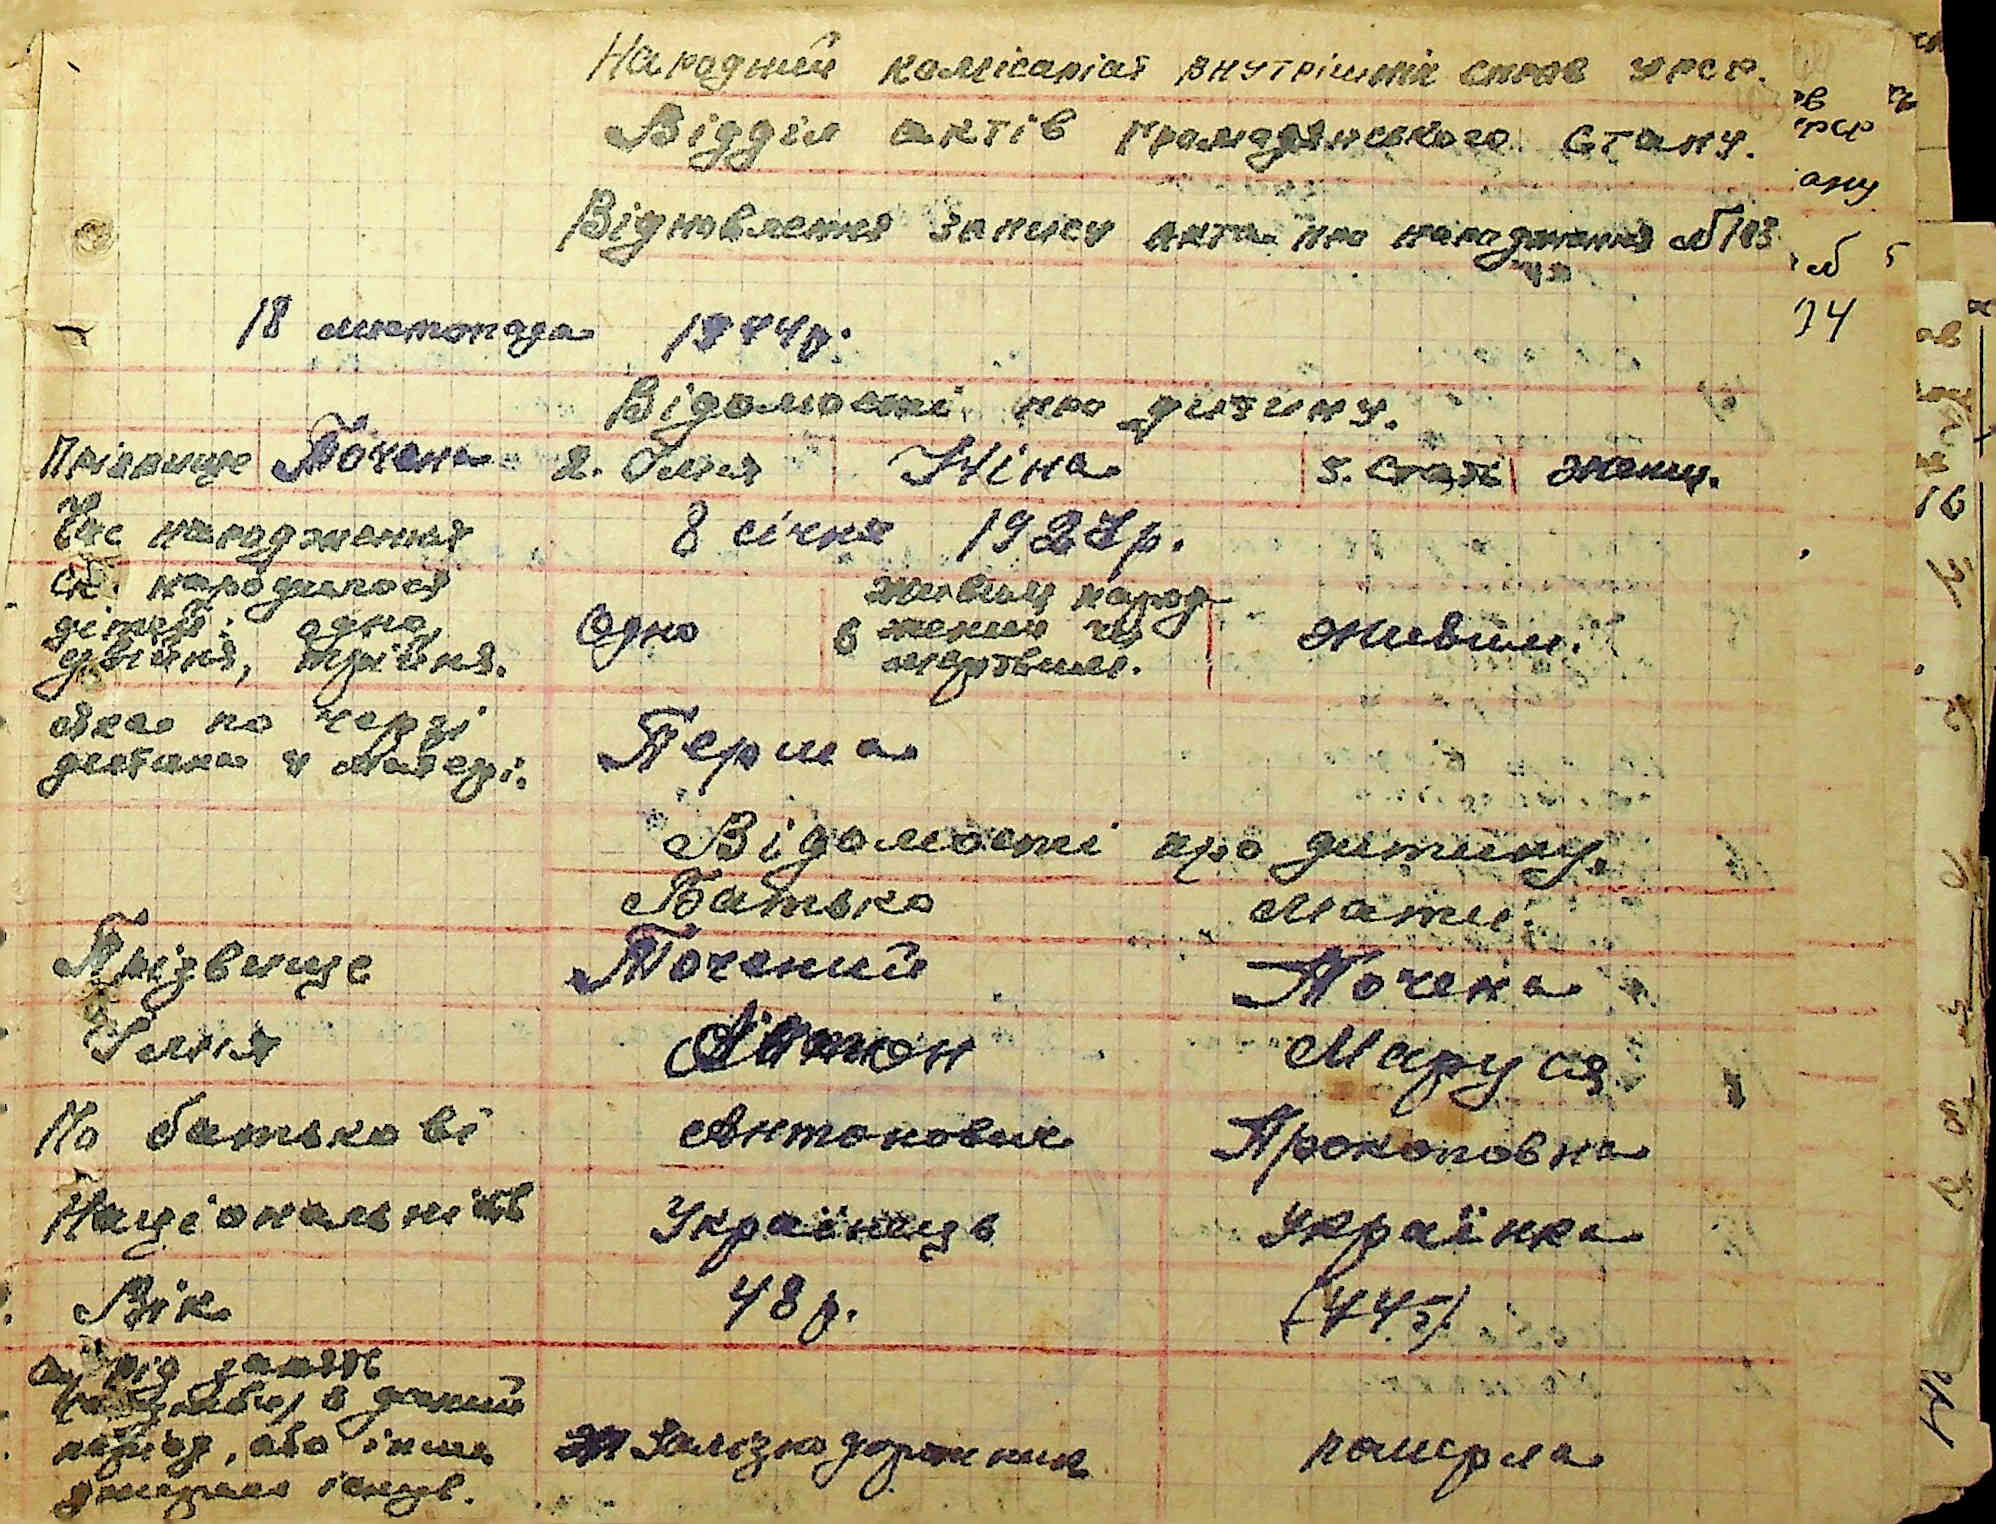 Народний комісаріат внутрішніх справ УРСР.
Відділ актів громадянського стану.
Відновлення запису акта про народження №103
18 листопада 1944р.
Відомості про дитину.
Прізвище Точена 2. Імя Ніна 3. Стать женщ.
Час народження 8 січня 1927р.
Ск. народилося дітей: одно, двійня, трійня. Одно 6 живим народженим чи мертвим. живим.
Яка по черзі
дитина у матері. Перша
Відомості про дитину.
Батько Мати.
Прізвище Точений Точена
Імя Антон Маруся
По батькові Антонович Прокоповна
Національність Українець Українка
Вік 48 р. (44)
рід занять
в даний
період, або інше Залізнодорожник померла
джерело існув.